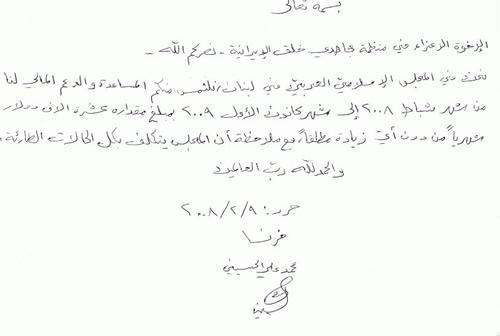 بسمه تعالى
الإخوة الأعزاء في منظمة مجاهدي خلق الإيرانية - نصركم الله -
نحن في المجلس الإسلامي العربي في لبنان، نلتمس منكم المساعدة والدعم المالي لنا
من شهر شباط ٢٠٠٨ إلى شهر كانون الأول ٢٠٠٩ بمبلغ مقداره عشرة الاف دولار
شهرياً من دون أي زيادة مطلقاً، مع ملاحظة أن المجلس يتكلف بكل الحالات الطارئة.
والحمدلله رب العالمين
حرر: ٢٠٠٨/٢/٩
فرنسا
محمد علي الحسيني